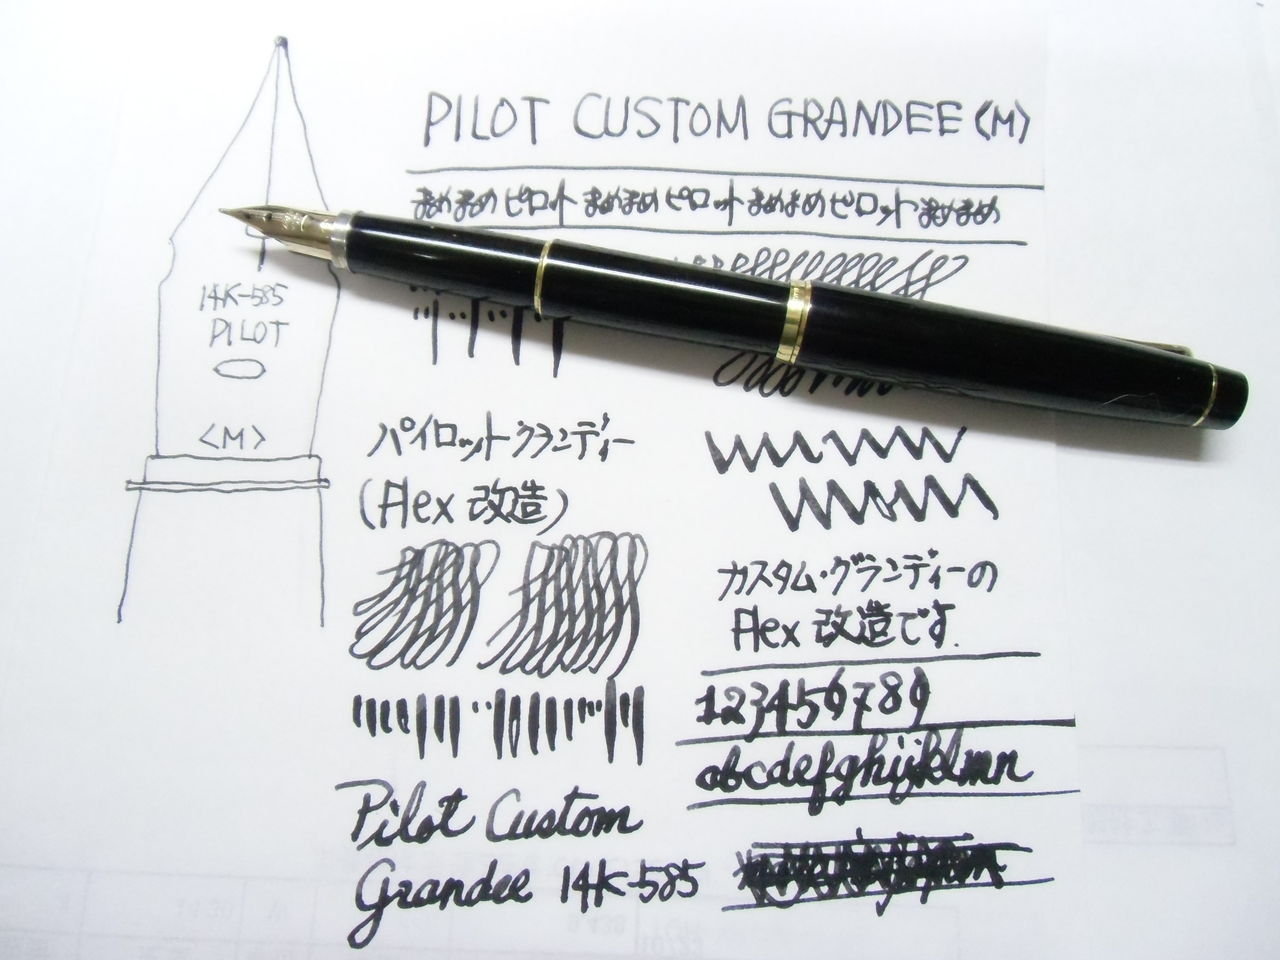 PILOT CUSTOM GRANDEE <M>
まめまめ ピロット まめまめ ピロット まめまめ ピロット まめまめ
14K-585
PILOT
<M>
パイロット グランディー
(Flex 改造)
カスタム・グランディーの
Flex 改造です.
123456789
abcdefghijklmn
Pilot Custom
Grandee 14K-585